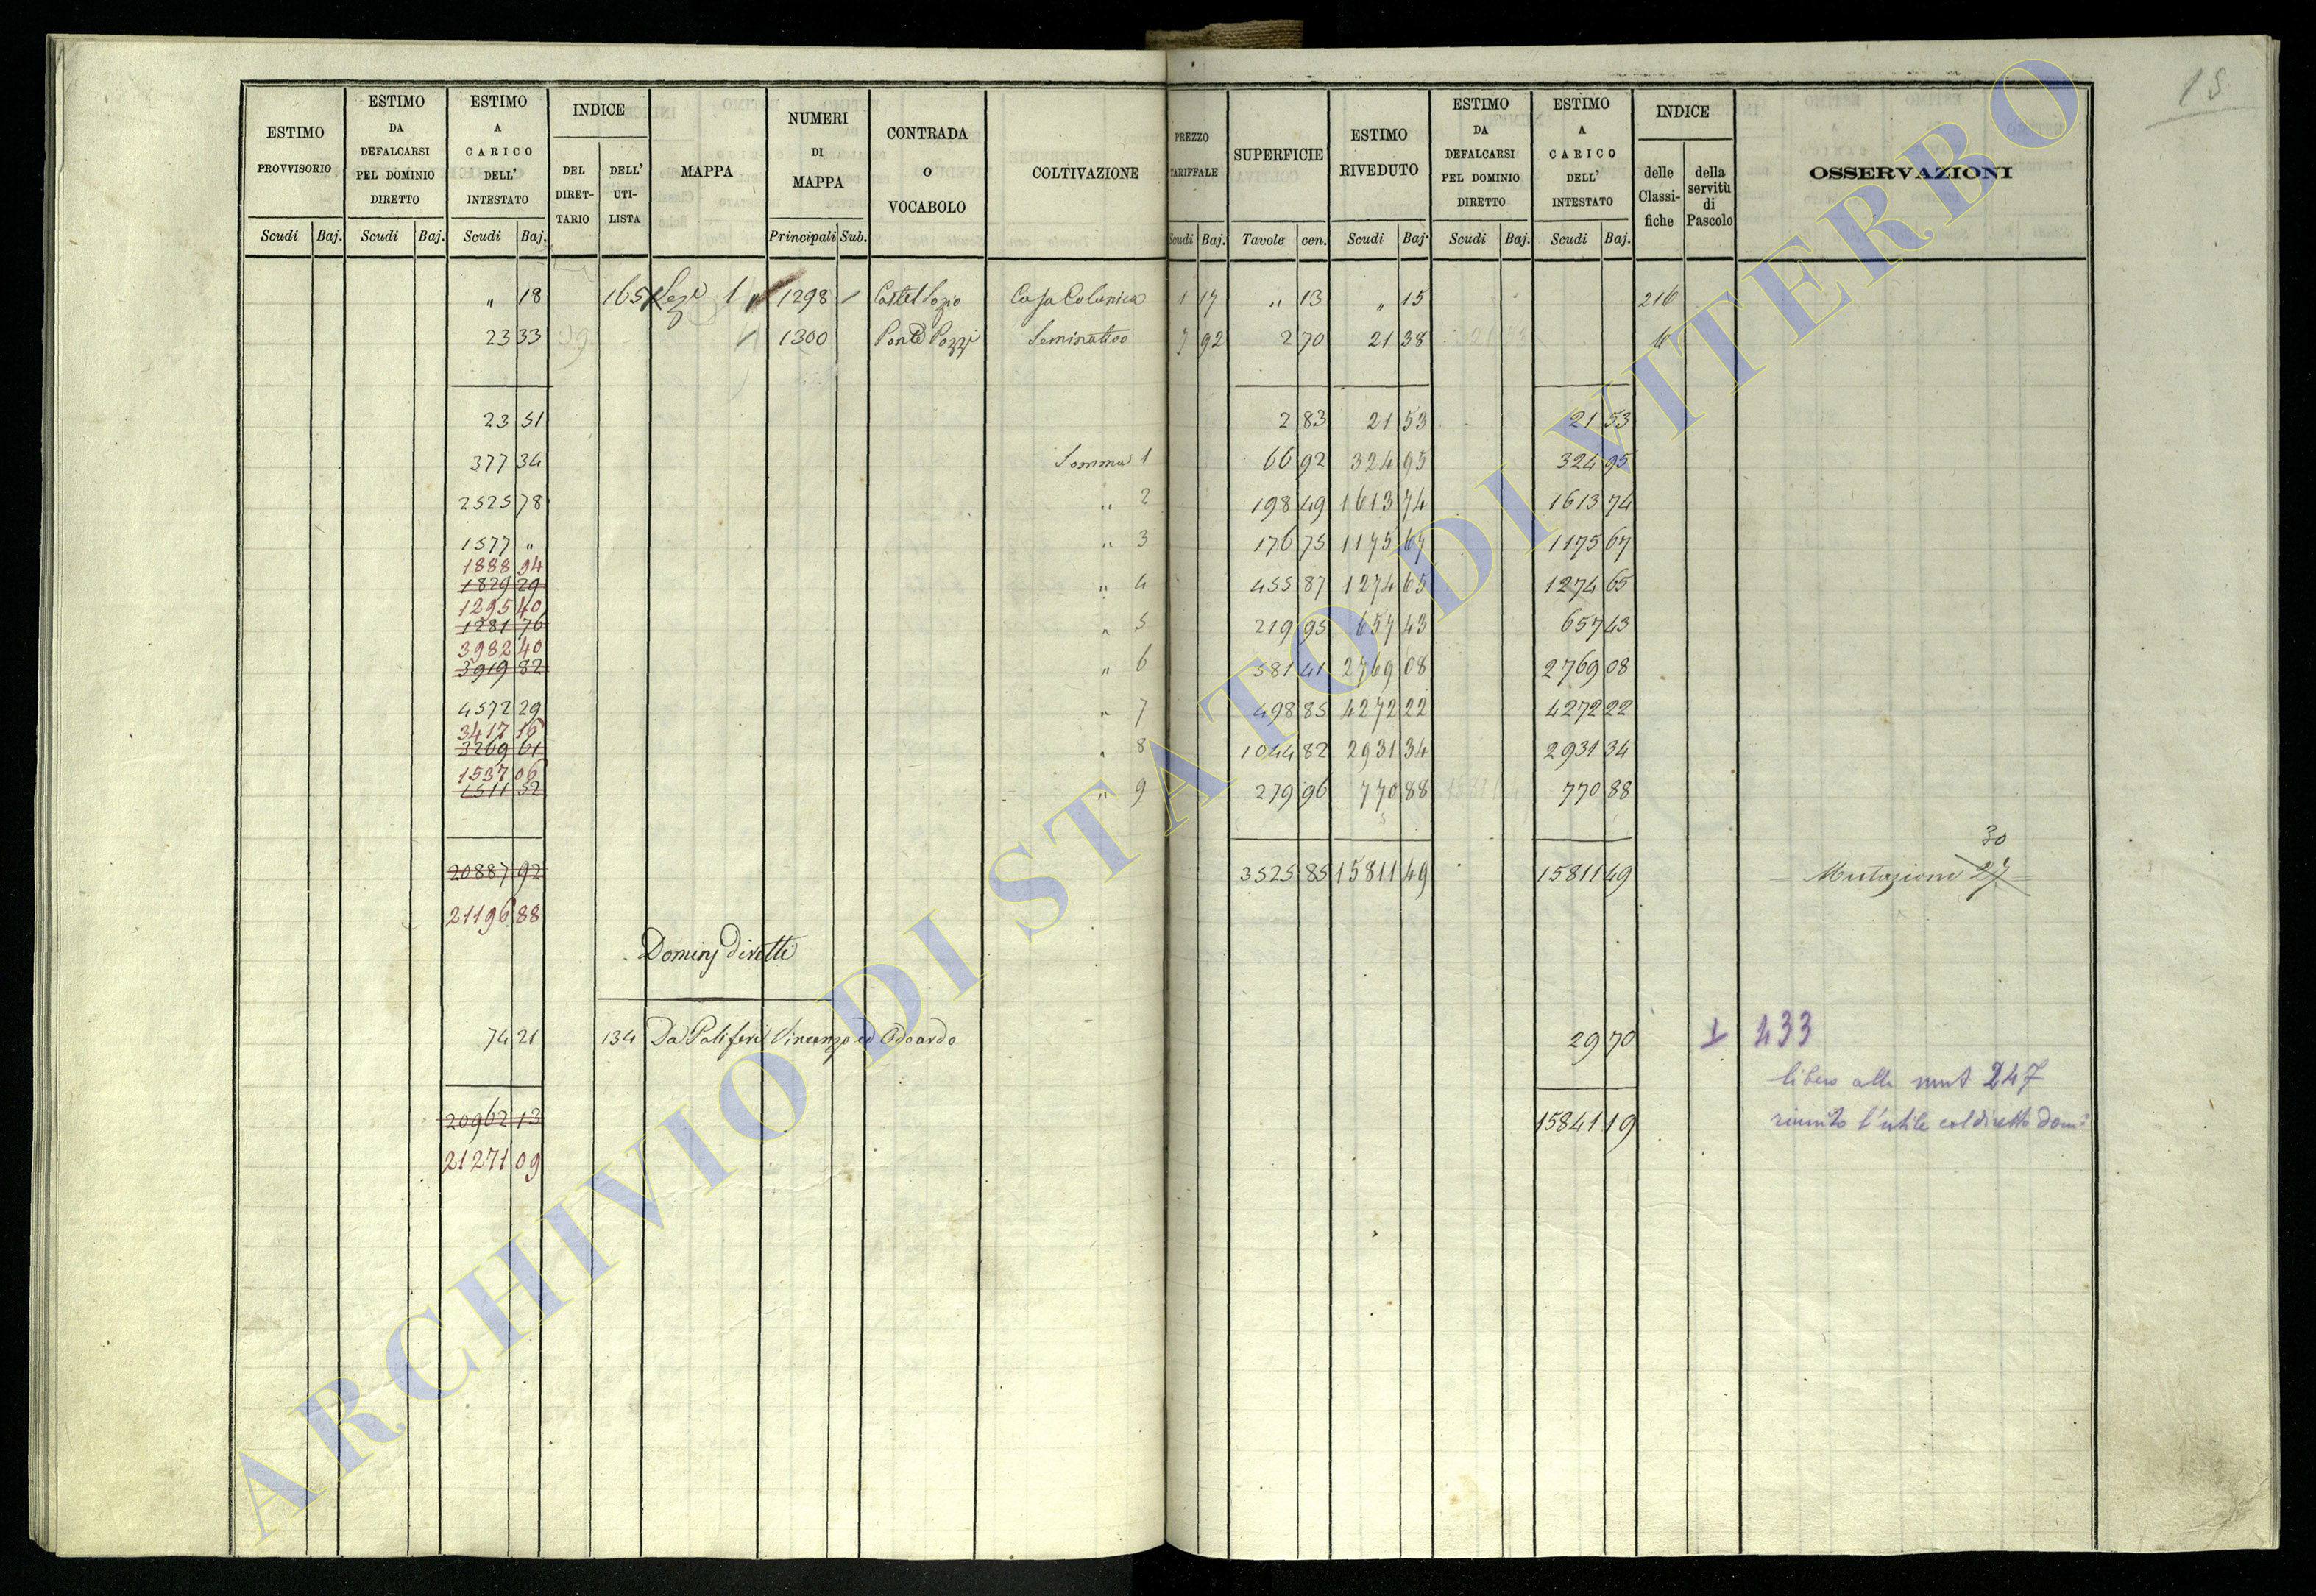 15
ESTIMO PROVVISORIO
ESTIMO DA DEFALCARSI PEL DOMINIO DIRETTO
ESTIMO A CARICO DELL' INTESTATO
INDICE
DEL DIRET-TARIO
DELL' UTI-LISTA
MAPPA
NUMERI DI MAPPA
CONTRADA O VOCABOLO
COLTIVAZIONE
PREZZO TARIFFALE
SUPERFICIE
ESTIMO RIVEDUTO
ESTIMO DA DEFALCARSI PEL DOMINIO DIRETTO
ESTIMO A CARICO DELL' INTESTATO
INDICE
delle Classi-fiche
della servitù di Pascolo
OSSERVAZIONI
Scudi Baj. Scudi Baj. Scudi Baj. Principali Sub. Scudi Baj. Tavole cen. Scudi Baj. Scudi Baj. Scudi Baj.
" 18 165 1 " 1298 Casa Colonica 1 17 " 13 " 15 216
23 33 1300 Seminativo 7 92 2 70 21 38 6
23 51 2 83 21 53 21 53
377 34 Somma 1 66 92 324 95 324 95
2525 78 " 2 198 49 1613 74 1613 74
1577 " " 3 176 75 1175 67 1175 67
1888 94
1829 29 " 4 455 87 1274 65 1274 65
1295 40
1281 76 " 5 219 95 657 43 657 43
3982 40
3919 82 " 6 581 41 2769 08 2769 08
4572 29 " 7 498 85 4272 22 4272 22
3417 16
3269 61 " 8 1044 82 2931 34 2931 34
1537 06
1511 52 " 9 279 96 770 88 770 88
30
20887 92 3525 85 15811 49 15811 49 Mutazione 27
21196 88
Dominj diretti
74 21 134 Da Paliferi Vincenzo ed Odoardo 29 70 433
libero alla mut 247
20962 13 15841 19 riunito l'utile col diretto dom:
21271 09
ARCHIVIO DI STATO DI VITERBO